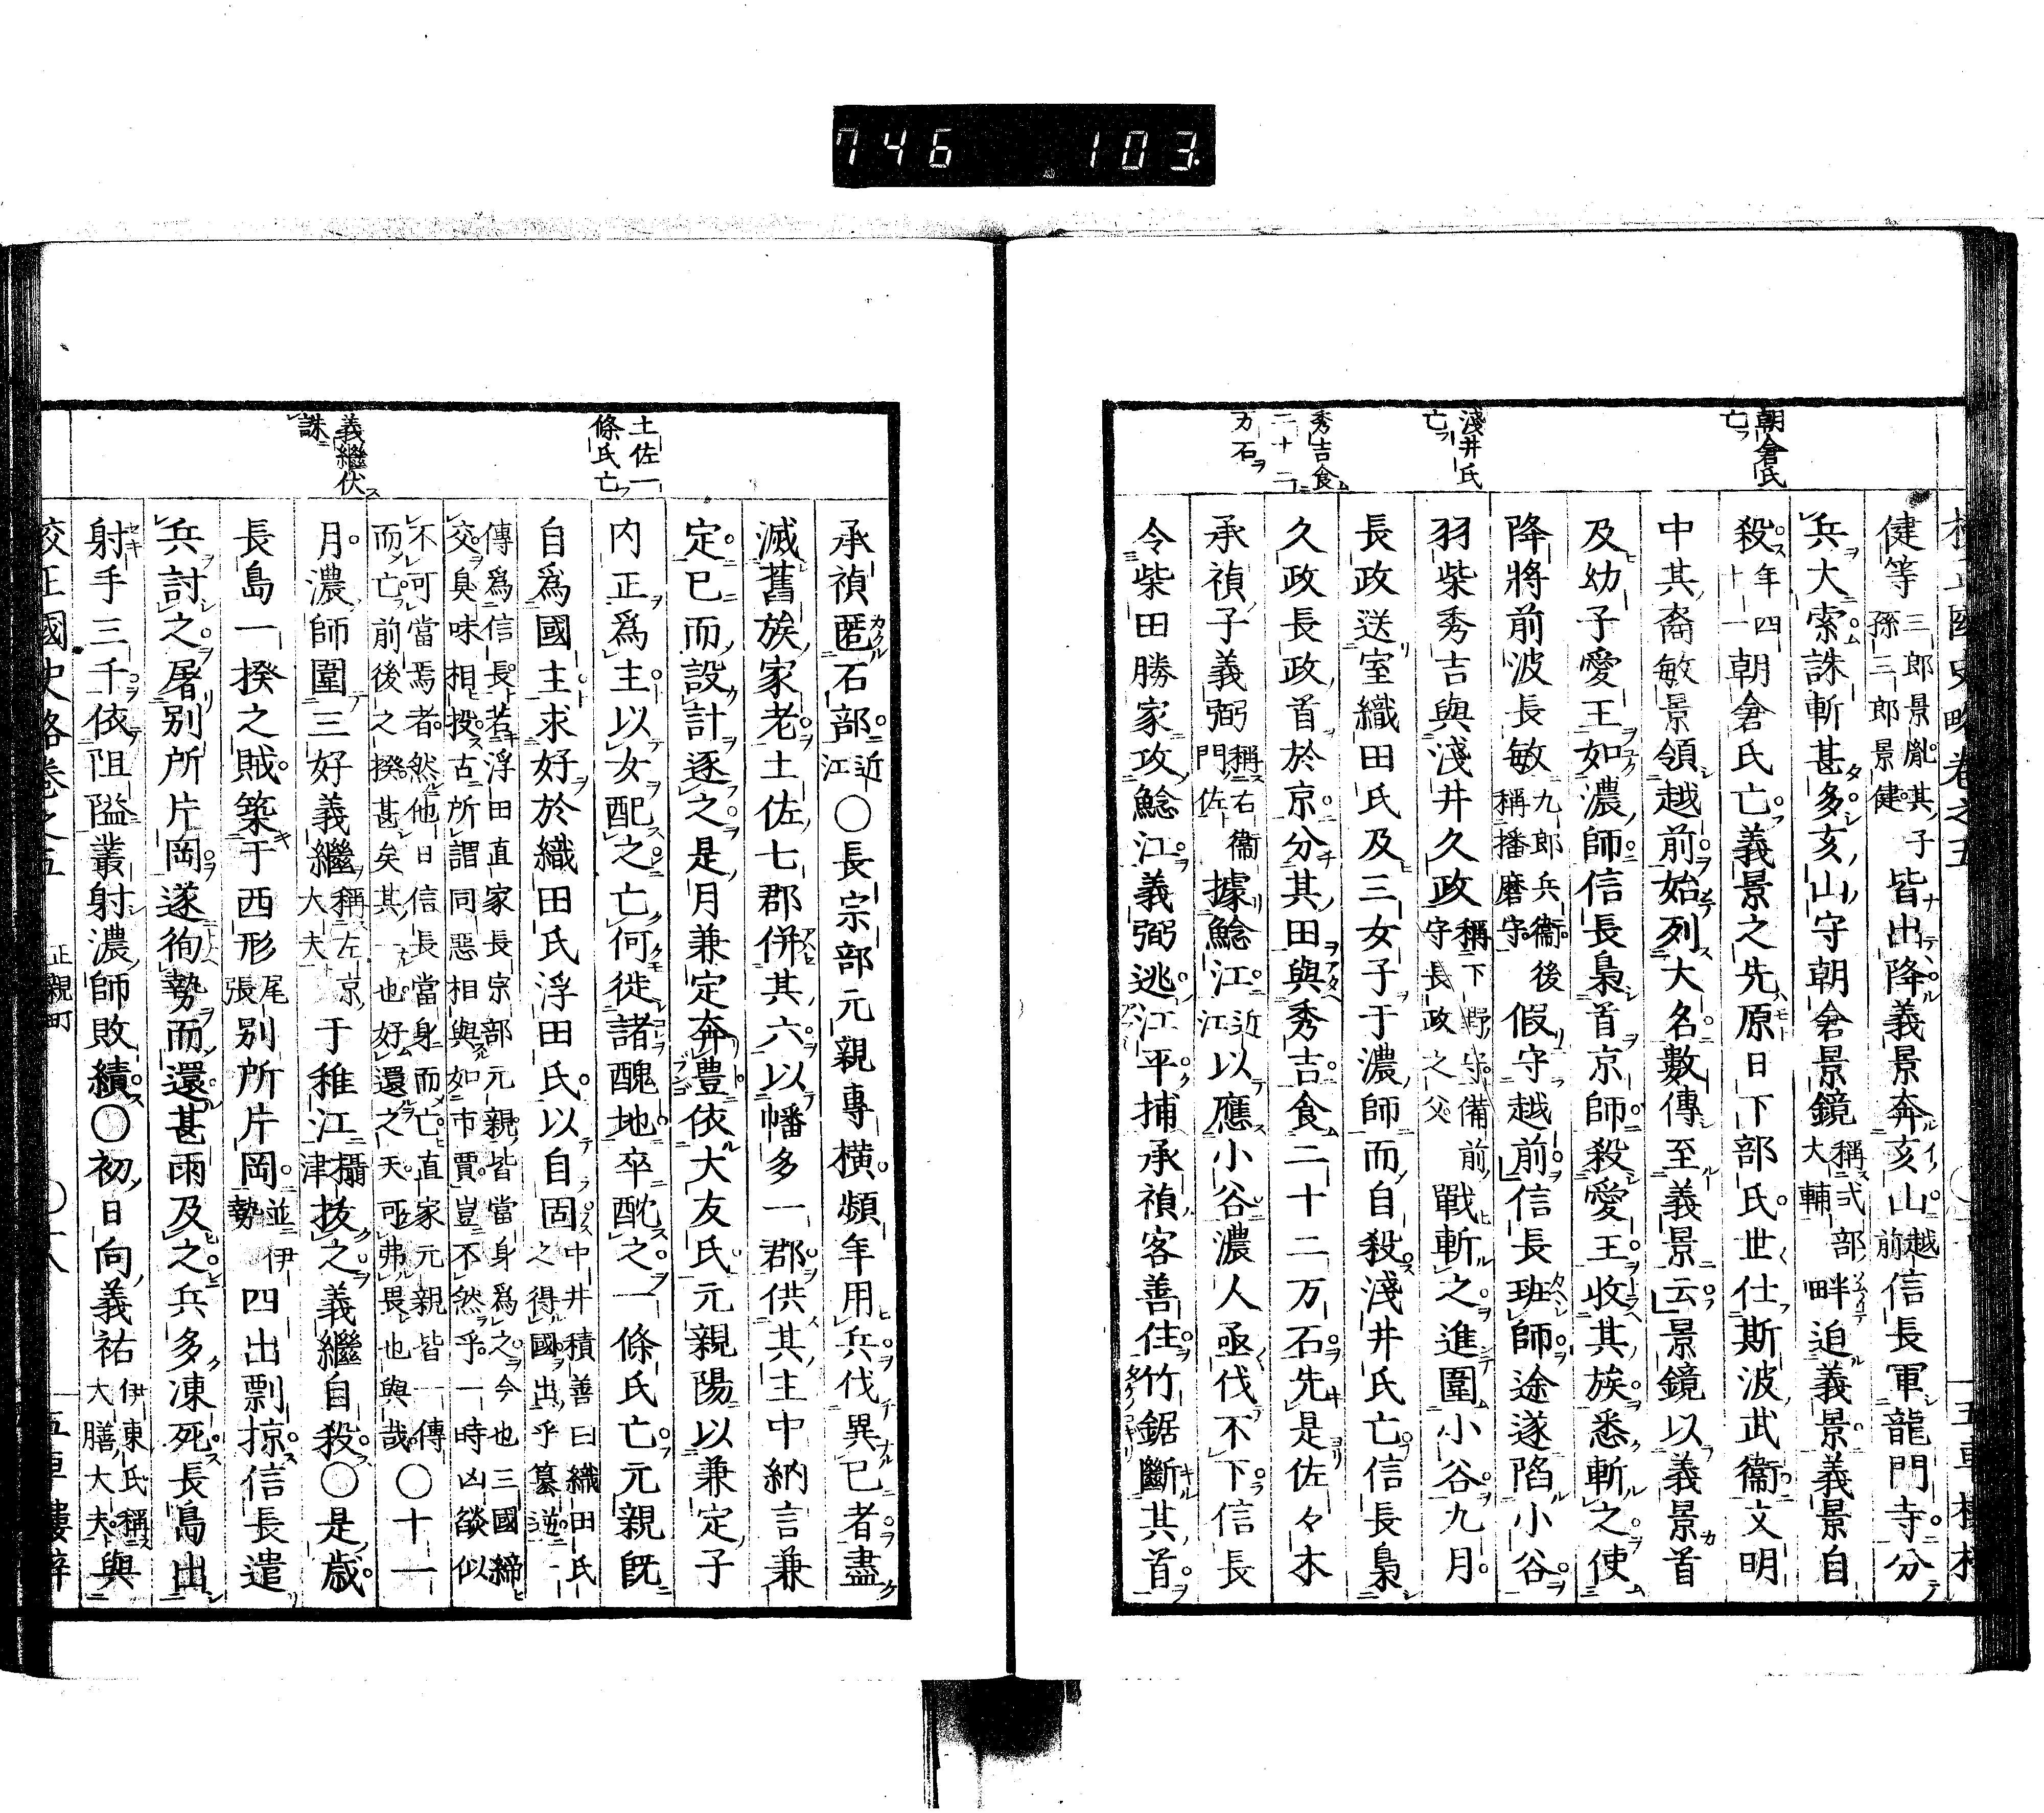 746 103
朝倉氏
亡
淺井氏
亡
秀吉食
二十二
万石
健等三郎景胤其子孫三郎景健皆出降義景奔亥山越前信長軍龍門寺分
兵大索誅斬甚多亥山守朝倉景鏡稱式部大輔畔迫義景義景自
殺年四十一朝倉氏亡義景之先原日下部氏世仕斯波武衞文明
中其裔敏景領越前始列大名數傳至義景云景鏡以義景首
及幼子愛王如濃師信長梟首京師殺愛王收其族悉斬之使
降將前波長敏九郎兵衞後稱播磨守假守越前信長班師途遂陷小谷
羽柴秀吉與淺井久政稱下野守備前守長政之父戰斬之進圍小谷九月
長政送室織田氏及三女子于濃師而自殺淺井氏亡信長梟
久政長政首於京分其田與秀吉食二十二万石先是佐々木
承禎子義弼稱右衞門佐據鯰江近江以應小谷濃人亟伐不下信長
令柴田勝家攻鯰江義弼逃江平捕承禎客善住竹鋸斷其首
土佐一
條氏亡
義繼伏
誅
承禎匿石部近江〇長宗部元親專横頻年用兵伐異已者盡
滅舊族家老土佐七郡併其六以幡多一郡供其主中納言兼
定已而設計逐之是月兼定奔豊依大友氏元親陽以兼定子
内正爲主以女配之亡何徙諸醜地卒酖之一條氏亡元親既
自爲國主求好於織田氏浮田氏以自固中井積善曰織田氏之得國出乎簒逆一
傳爲信長若浮田直家長宗部元親皆當身爲之今也三國締交臭味相投古所謂同惡相與如市賈豈不然乎一時凶燄似
不可當焉者然他日信長當身而亡直家元親皆一傳而亡前後之揆甚矣其一也好還之天可弗畏也與哉〇十一
月濃師圍三好義繼稱左京大夫于稚江攝津拔之義繼自殺〇是歳
長島一揆之賊築于西形尾張別所片岡並伊勢四出剽掠信長遣
兵討之屠別所片岡遂徇勢而還甚雨及之兵多凍死長島出
射手三千依阻隘叢射濃師敗績〇初日向義祐伊東氏稱大膳大夫與
校正國史略卷之五 正親町